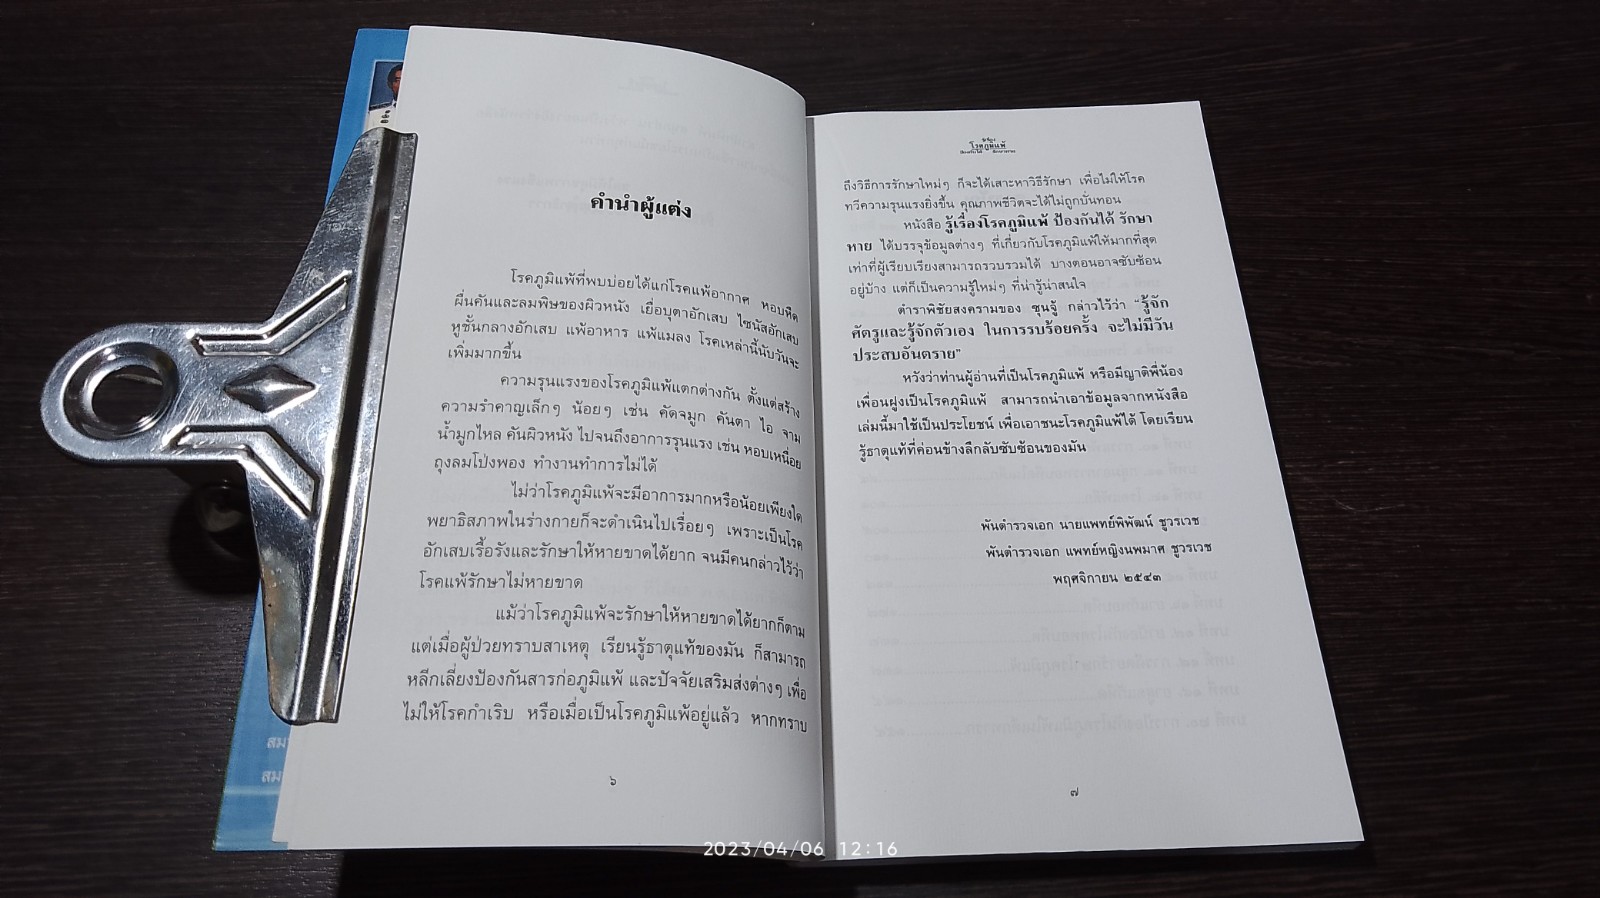 คำนำผู้แต่ง
โรคภูมิแพ้ที่พบบ่อยได้แก่โรคแพ้อากาศ หอบหืด
ผื่นคันและลมพิษของผิวหนัง เยื่อบุตาอักเสบ ไซนัสอักเสบ
หูชั้นกลางอักเสบ แพ้อาหาร แพ้แมลง โรคเหล่านี้นับวันจะ
เพิ่มมากขึ้น
ความรุนแรงของโรคภูมิแพ้แตกต่างกัน ตั้งแต่สร้าง
ความรำคาญเล็กๆ น้อยๆ เช่น คัดจมูก คันตา ไอ จาม
น้ำมูกไหล คันผิวหนัง ไปจนถึงอาการรุนแรง เช่น หอบเหนื่อย
ถุงลมโป่งพอง ทำงานทำการไม่ได้
ไม่ว่าโรคภูมิแพ้จะมีอาการมากหรือน้อยเพียงใด
พยาธิสภาพในร่างกายก็จะดำเนินไปเรื่อยๆ เพราะเป็นโรค
อักเสบเรื้อรังและรักษาให้หายขาดได้ยาก จนมีคนกล่าวไว้ว่า
โรคแพ้รักษาไม่หายขาด
แม้ว่าโรคภูมิแพ้จะรักษาให้หายขาดได้ยากก็ตาม
แต่เมื่อผู้ป่วยทราบสาเหตุ เรียนรู้ธาตุแท้ของมัน ก็สามารถ
หลีกเลี่ยงป้องกันสารก่อภูมิแพ้ และปัจจัยเสริมส่งต่างๆ เพื่อ
ไม่ให้โรคกำเริบ หรือเมื่อเป็นโรคภูมิแพ้อยู่แล้ว หากทราบ
๖
รู้เรื่อง
โรคภูมิแพ้
ป้องกันได้ รักษาหาย
ถึงวิธีการรักษาใหม่ๆ ก็จะได้เสาะหาวิธีรักษา เพื่อไม่ให้โรค
ทวีความรุนแรงยิ่งขึ้น คุณภาพชีวิตจะได้ไม่ถูกบั่นทอน
หนังสือ รู้เรื่องโรคภูมิแพ้ ป้องกันได้ รักษา
หาย ได้บรรจุข้อมูลต่างๆ ที่เกี่ยวกับโรคภูมิแพ้ให้มากที่สุด
เท่าที่ผู้เรียบเรียงสามารถรวบรวมได้ บางตอนอาจซับซ้อน
อยู่บ้าง แต่ก็เป็นความรู้ใหม่ๆ ที่น่ารู้น่าสนใจ
ตำราพิชัยสงครามของ ซุนจู้ กล่าวไว้ว่า "รู้จัก
ศัตรูและรู้จักตัวเอง ในการรบร้อยครั้ง จะไม่มีวัน
ประสบอันตราย"
หวังว่าท่านผู้อ่านที่เป็นโรคภูมิแพ้ หรือมีญาติพี่น้อง
เพื่อนฝูงเป็นโรคภูมิแพ้ สามารถนำเอาข้อมูลจากหนังสือ
เล่มนี้มาใช้เป็นประโยชน์ เพื่อเอาชนะโรคภูมิแพ้ได้ โดยเรียน
รู้ธาตุแท้ที่ค่อนข้างลึกลับซับซ้อนของมัน
พันตำรวจเอก นายแพทย์พิพัฒน์ ชูวรเวช
พันตำรวจเอก แพทย์หญิงนพมาศ ชูวรเวช
พฤศจิกายน ๒๕๔๓
๗
2023/04/06 12:16